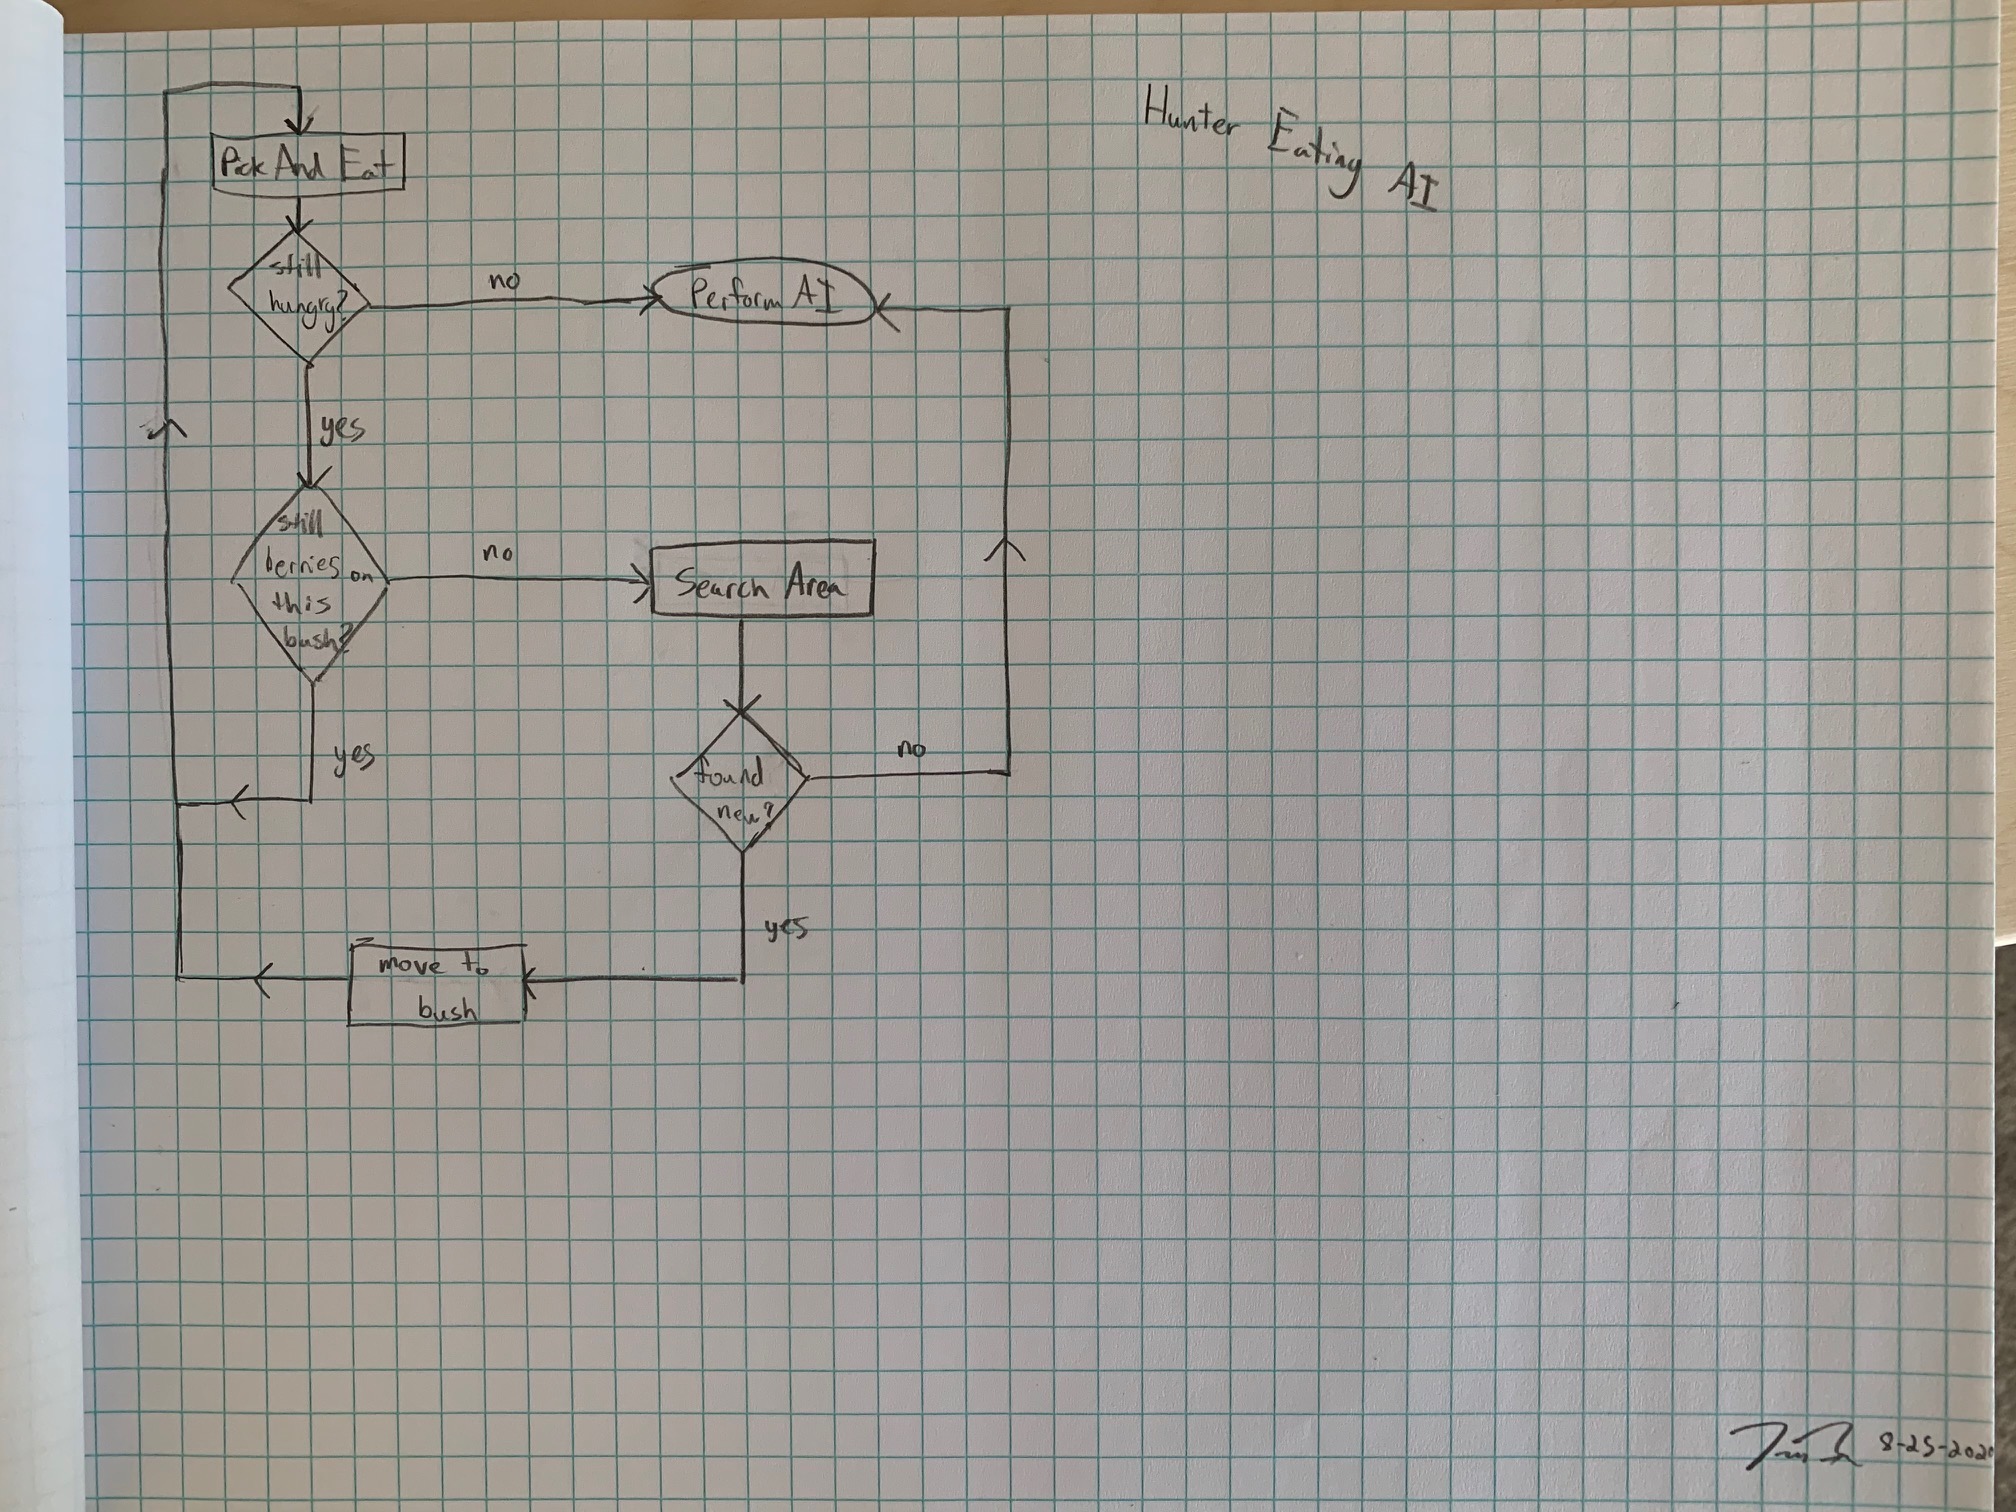 Hunter Eating AI
Pick And Eat
still
hungry?
no
Perform AI
yes
still
berries on
this
bush?
no
Search Area
yes
found
new?
no
yes
move to
bush
8-25-2020